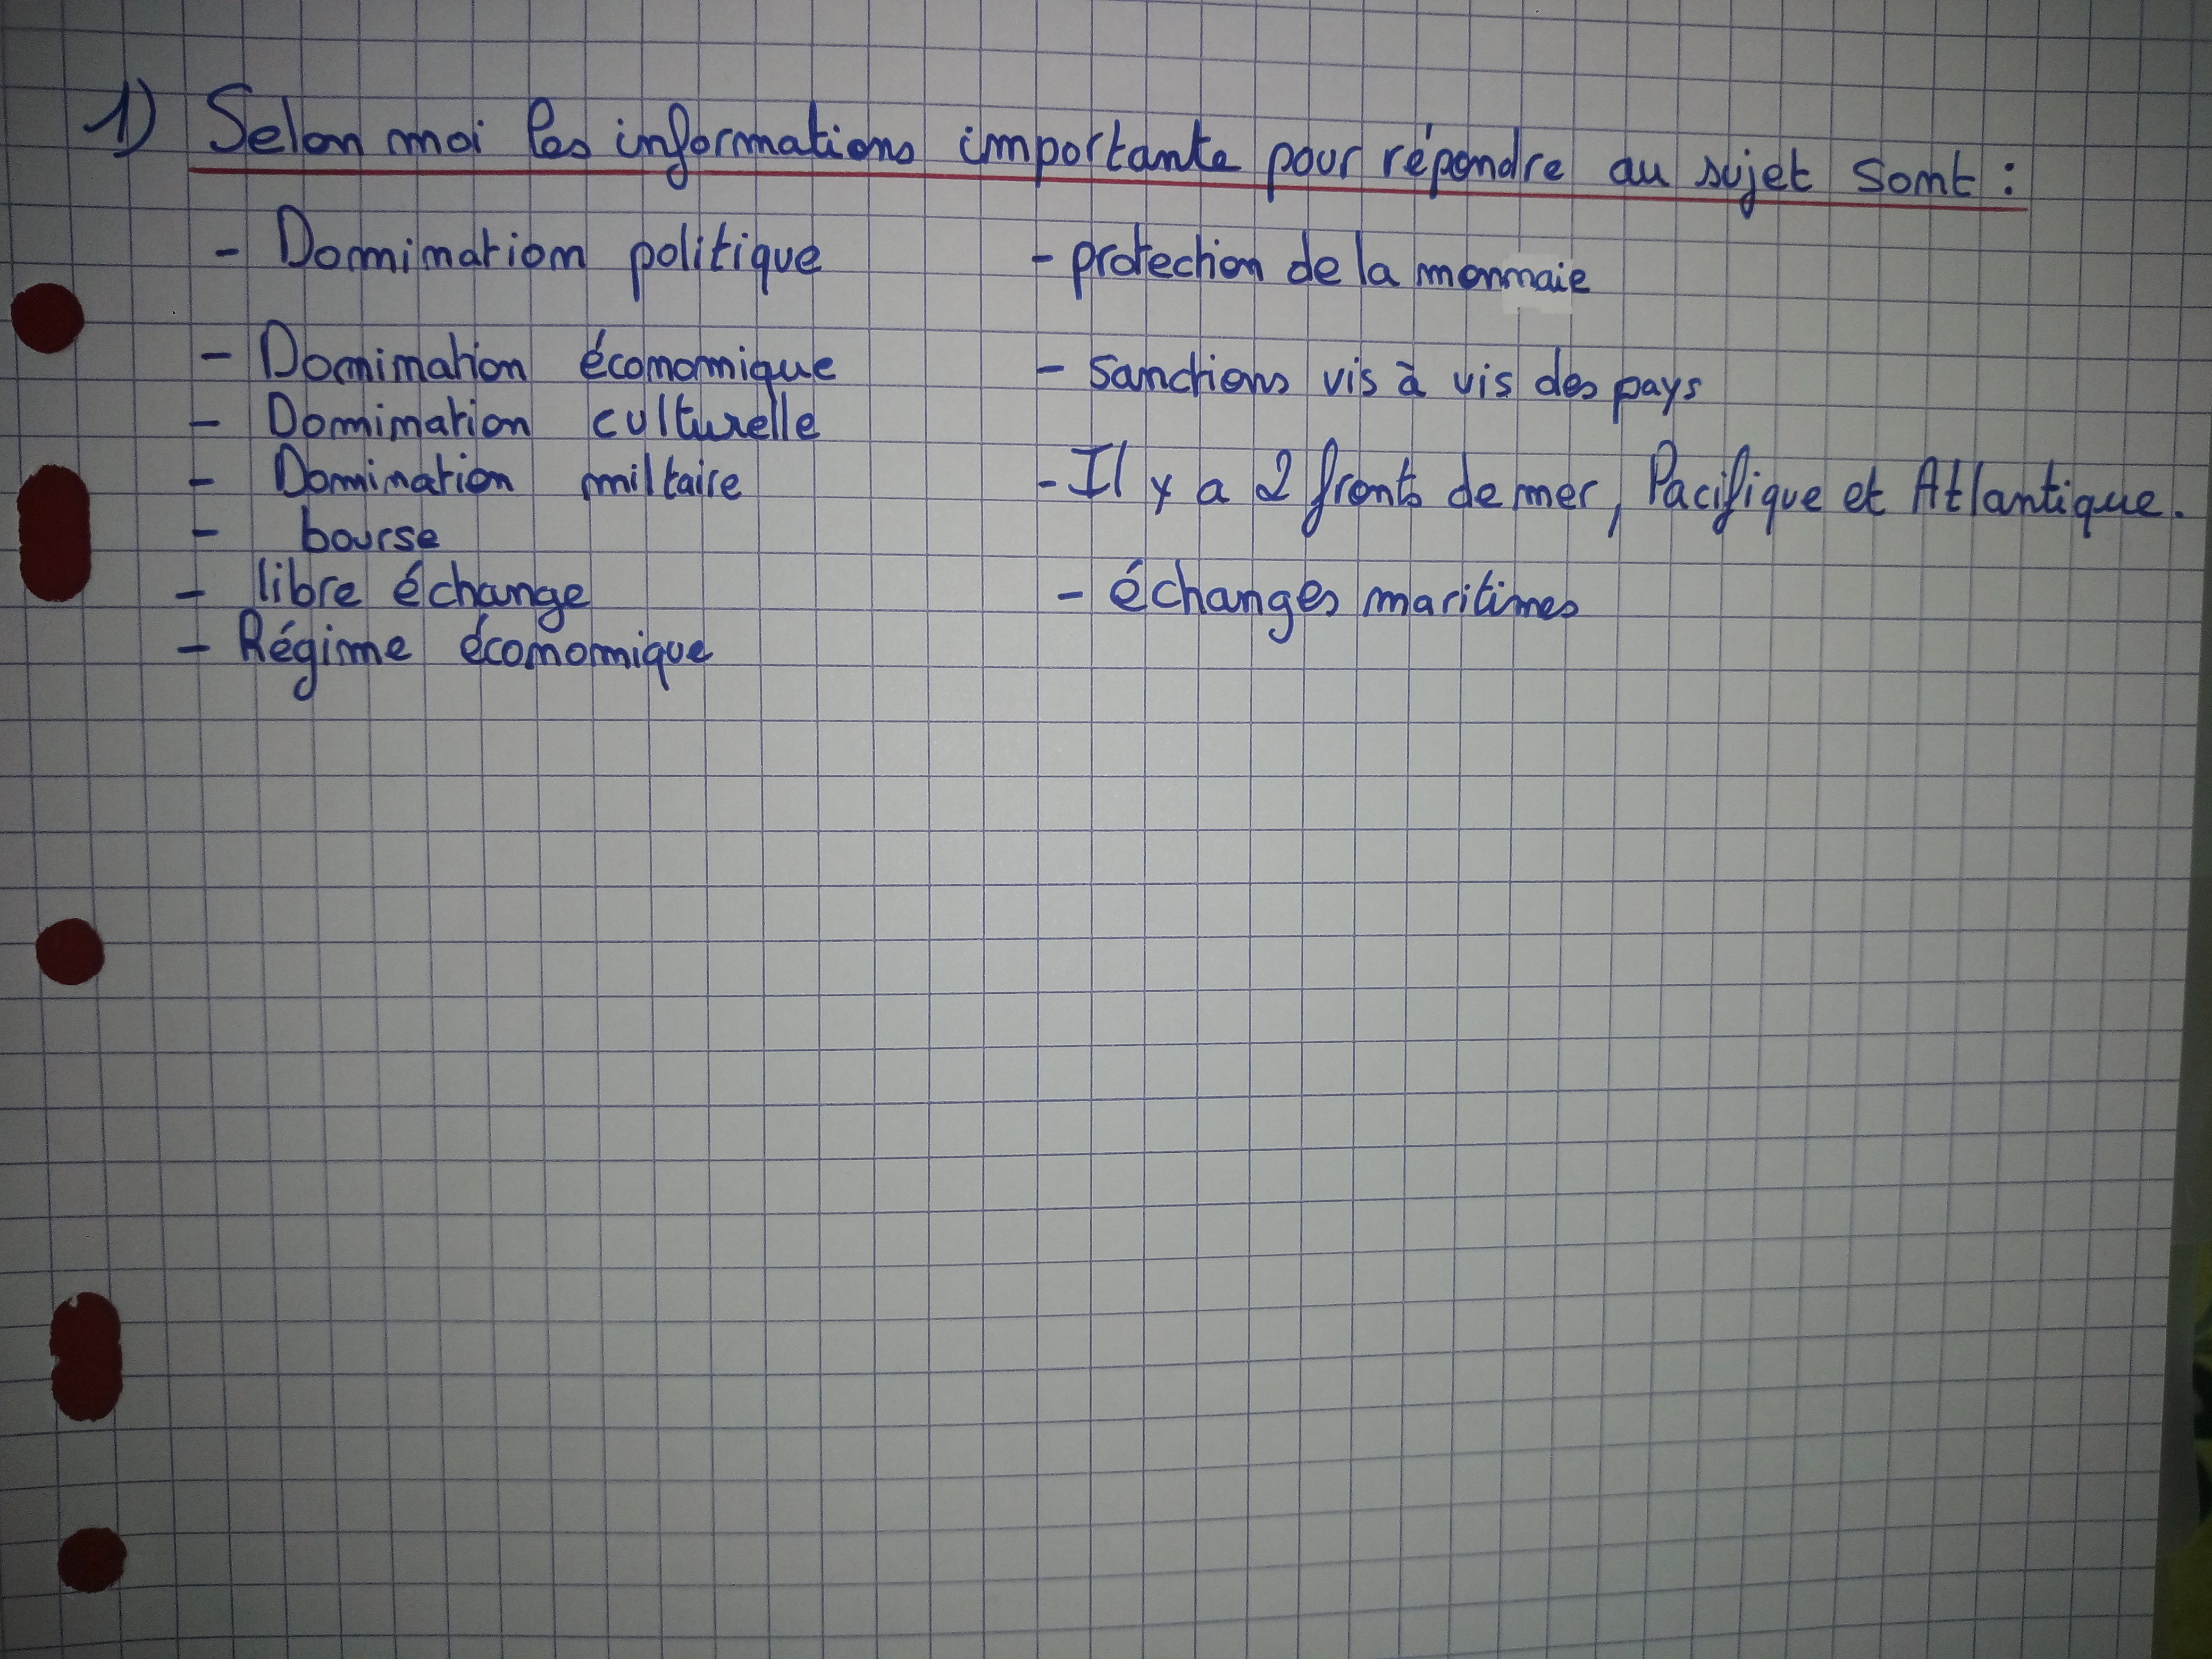 1) Selon moi les informations importante pour répondre au sujet sont :
- Domination politique
- Domination économique
- Domination culturelle
- Domination miltaire
- bourse
- libre échange
- Régime économique
- protection de la monnaie
- Sanctions vis à vis des pays
- Il y a 2 fronts de mer, Pacifique et Atlantique.
- échanges maritimes